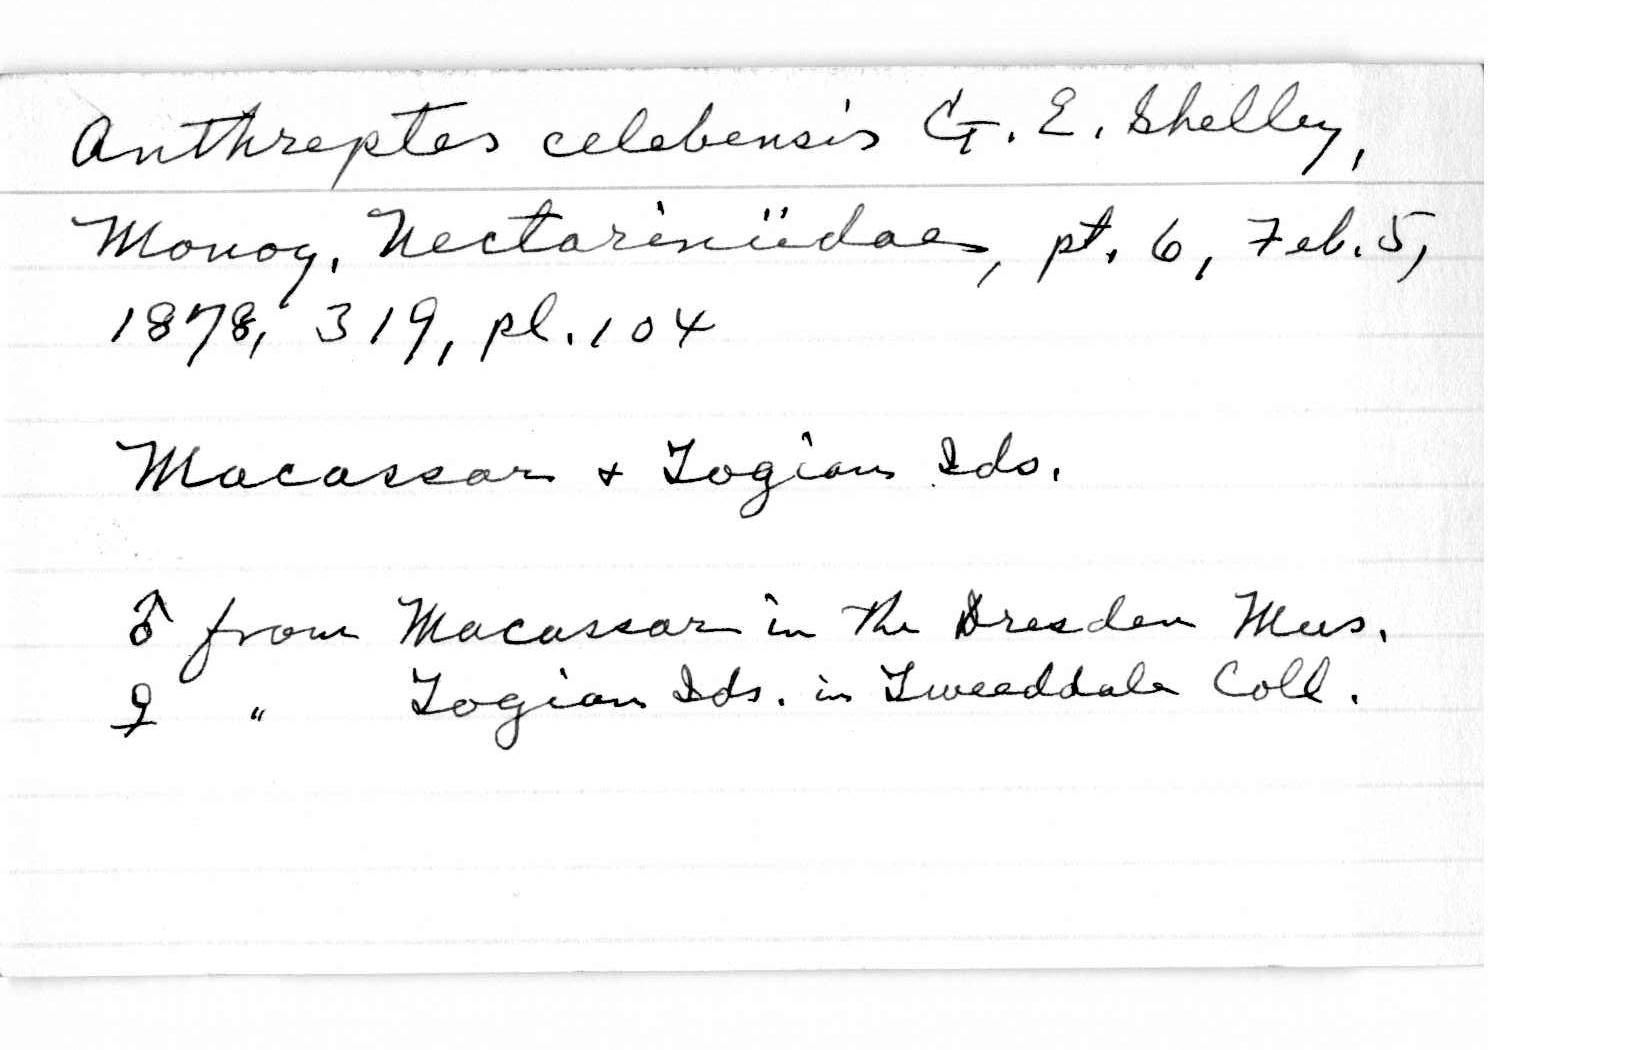 Anthreptes celebensis G. E. Shelley,
Monog. Nectariniidae, pt. 6, Feb. 5,
1878, 319, pl. 104
Macassar + Togian Ids.
♂ from Macassar in the Dresden Mus.
♀ " Togian Ids. in Tweeddale Coll.